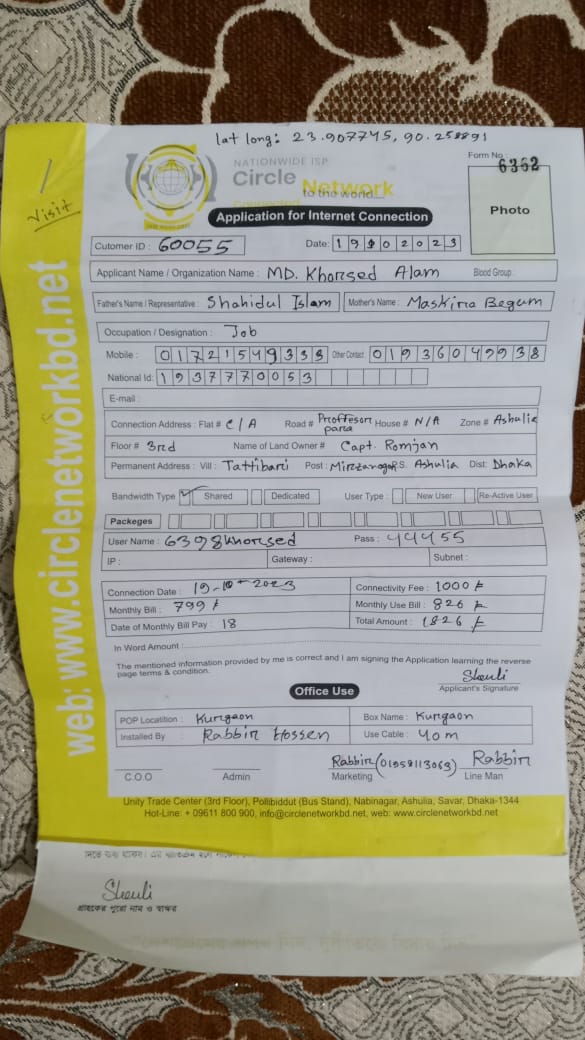 lat long: 23.907745, 90.258891
NATIONWIDE ISP
Circle Network
to the world...
Form No :
6362
Photo
Application for Internet Connection
Visit
Cutomer ID : 60055 Date: 19102023
Applicant Name / Organization Name : MD. Khorsed Alam Blood Group :
Father's Name / Representative : Shahidul Islam Mother's Name : Maskina Begum
Occupation / Designation : Job
Mobile : 01721549338 Other Contact : 01936049938
National Id: 1937770053
E-mail :
Connection Address : Flat # C/A Road # Proffesor para House # N/A Zone # Ashulia
Floor # 3rd Name of Land Owner # Capt. Romjan
Permanent Address : Vill : Tattibari Post : Mirzanagar P.S. Ashulia Dist: Dhaka
Bandwidth Type Shared Dedicated User Type : New User Re-Active User
Packeges
User Name : 6398khorsed Pass : 44455
IP : Gateway : Subnet :
Connection Date : 19-10-2023 Connectivity Fee : 1000 ৳
Monthly Bill : 799 ৳ Monthly Use Bill : 826 ৳
Date of Monthly Bill Pay : 18 Total Amount : 1826 ৳
In Word Amount :
The mentioned information provided by me is correct and I am signing the Application learning the reverse
page terms & condition.
Sheuli
Applicant's Signature
Office Use
POP Locatition : Kurgaon Box Name : Kurgaon
Installed By : Rabbir Hossen Use Cable : 40m
Rabbir (01958113063) Rabbir
C.O.O Admin Marketing Line Man
Unity Trade Center (3rd Floor), Pollibiddut (Bus Stand), Nabinagar, Ashulia, Savar, Dhaka-1344
Hot-Line: + 09611 800 900, info@circlenetworkbd.net, web: www.circlenetworkbd.net
web: www.circlenetworkbd.net
Sheuli
গ্রাহকের পুরো নাম ও স্বাক্ষর